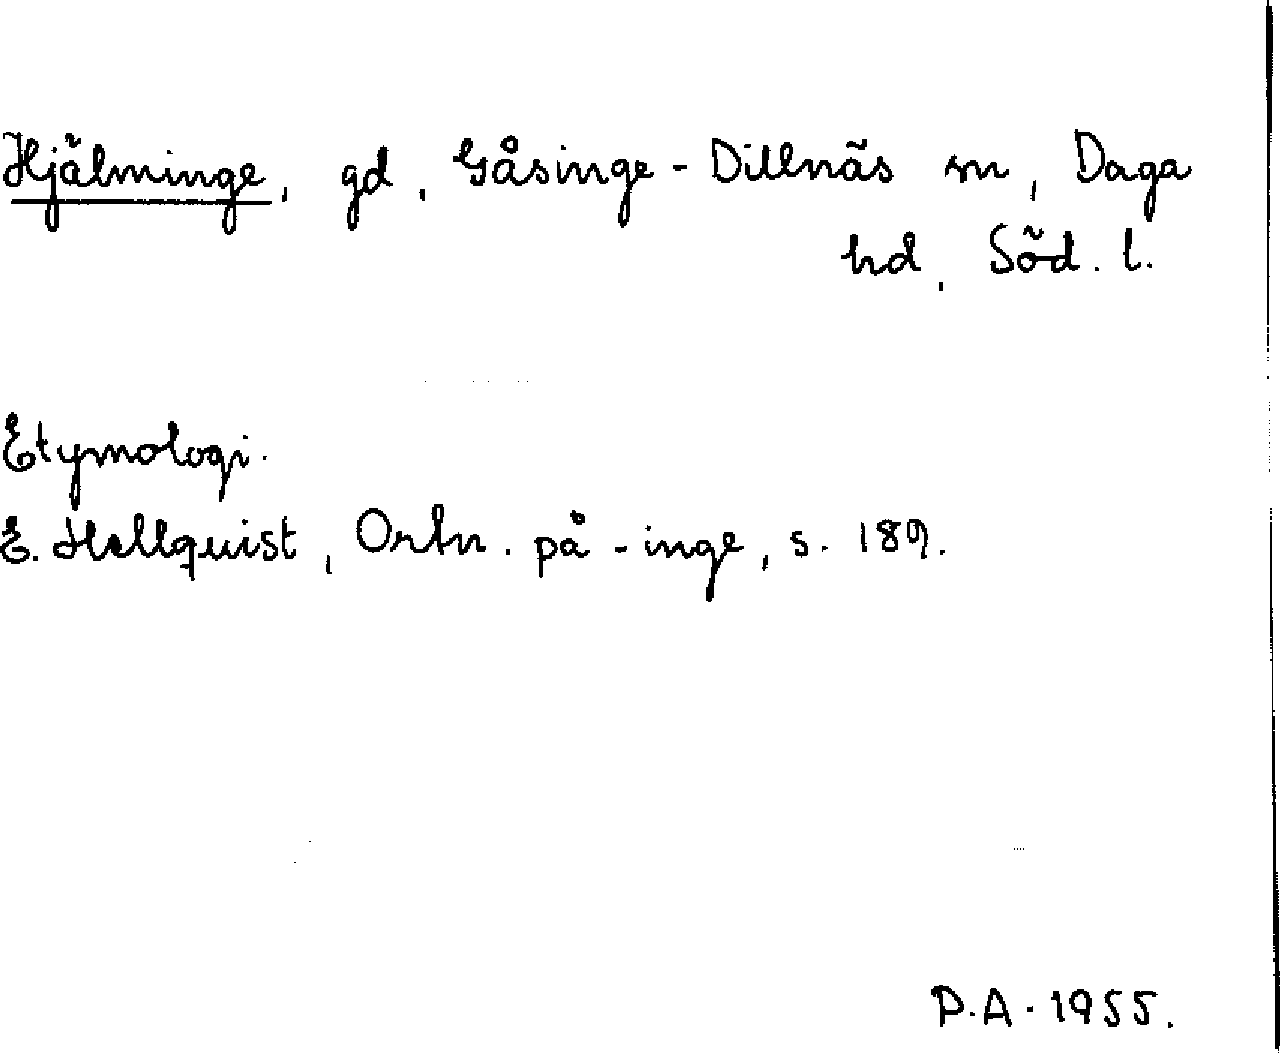 Hjälminge, gd, Gåsinge-Dillnäs sn, Daga
hd, Söd. l.
Etymologi.
E. Hellquist, Ortn. på -inge, s. 189.
P.A. 1955.